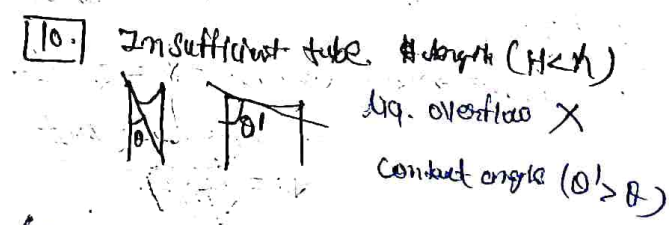 10. Insufficient tube length (H<h)
θ θ' liq. overflow X
contact angle (θ'>θ)